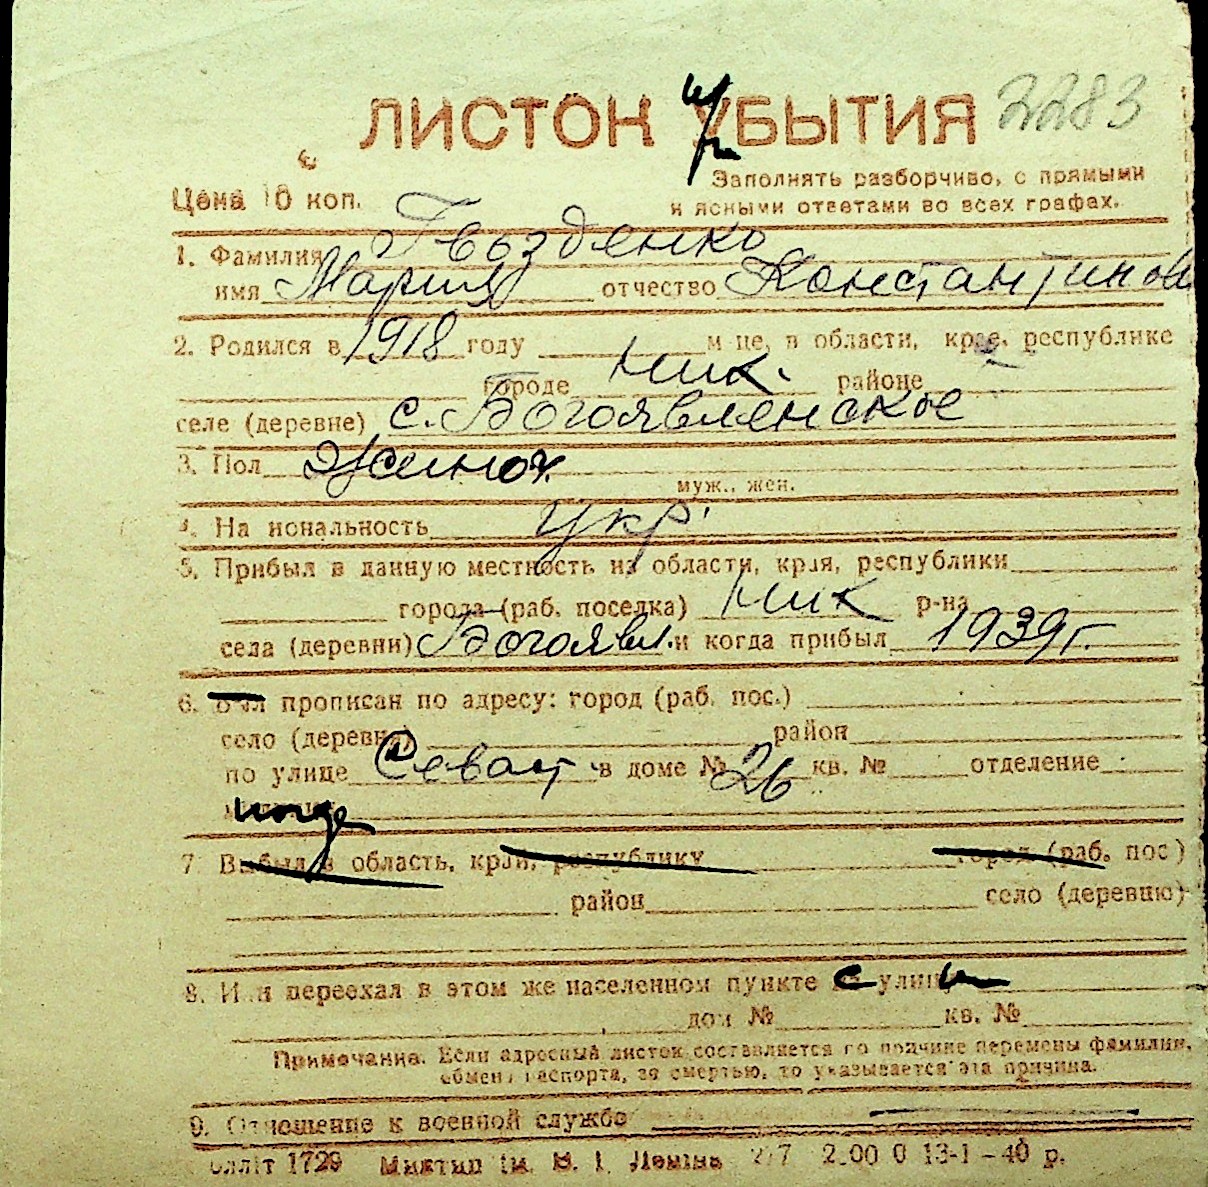 ЛИСТОН УБЫТИЯ 2283
при
Заполнять разборчиво, с прямыми
Цена 10 коп. и ясными ответами во всех графах.
1. Фамилия Гвозденко
имя Мария отчество Константинов
2. Родился в 1918 году м-це, в области, крае, республике
городе Ник. районе
селе (деревне) с. Богоявленское
3. Пол Жиноч.
муж., жен.
4. Национальность укр.
5. Прибыл в данную местность из области, края, республики
города (раб. поселка) Ник р-на
села (деревни) Богоявл. и когда прибыл 1939 г.
6. прописан по адресу: город (раб. пос.)
село (деревня) район
по улице Севаст. в доме № 26 кв. № отделение
7. Выбыл в область, край, республику город (раб. пос)
район село (деревню)
8. Или переехал в этом же населенном пункте с улицы
дом № кв. №
Примечание. Если адресный листок составляется по причине перемены фамилии,
обмена паспорта, за смертью, то указывается эта причина.
9. Отношение к военной службе
1729 Миктип ім. В. І. Леніна 13-1-40 р.